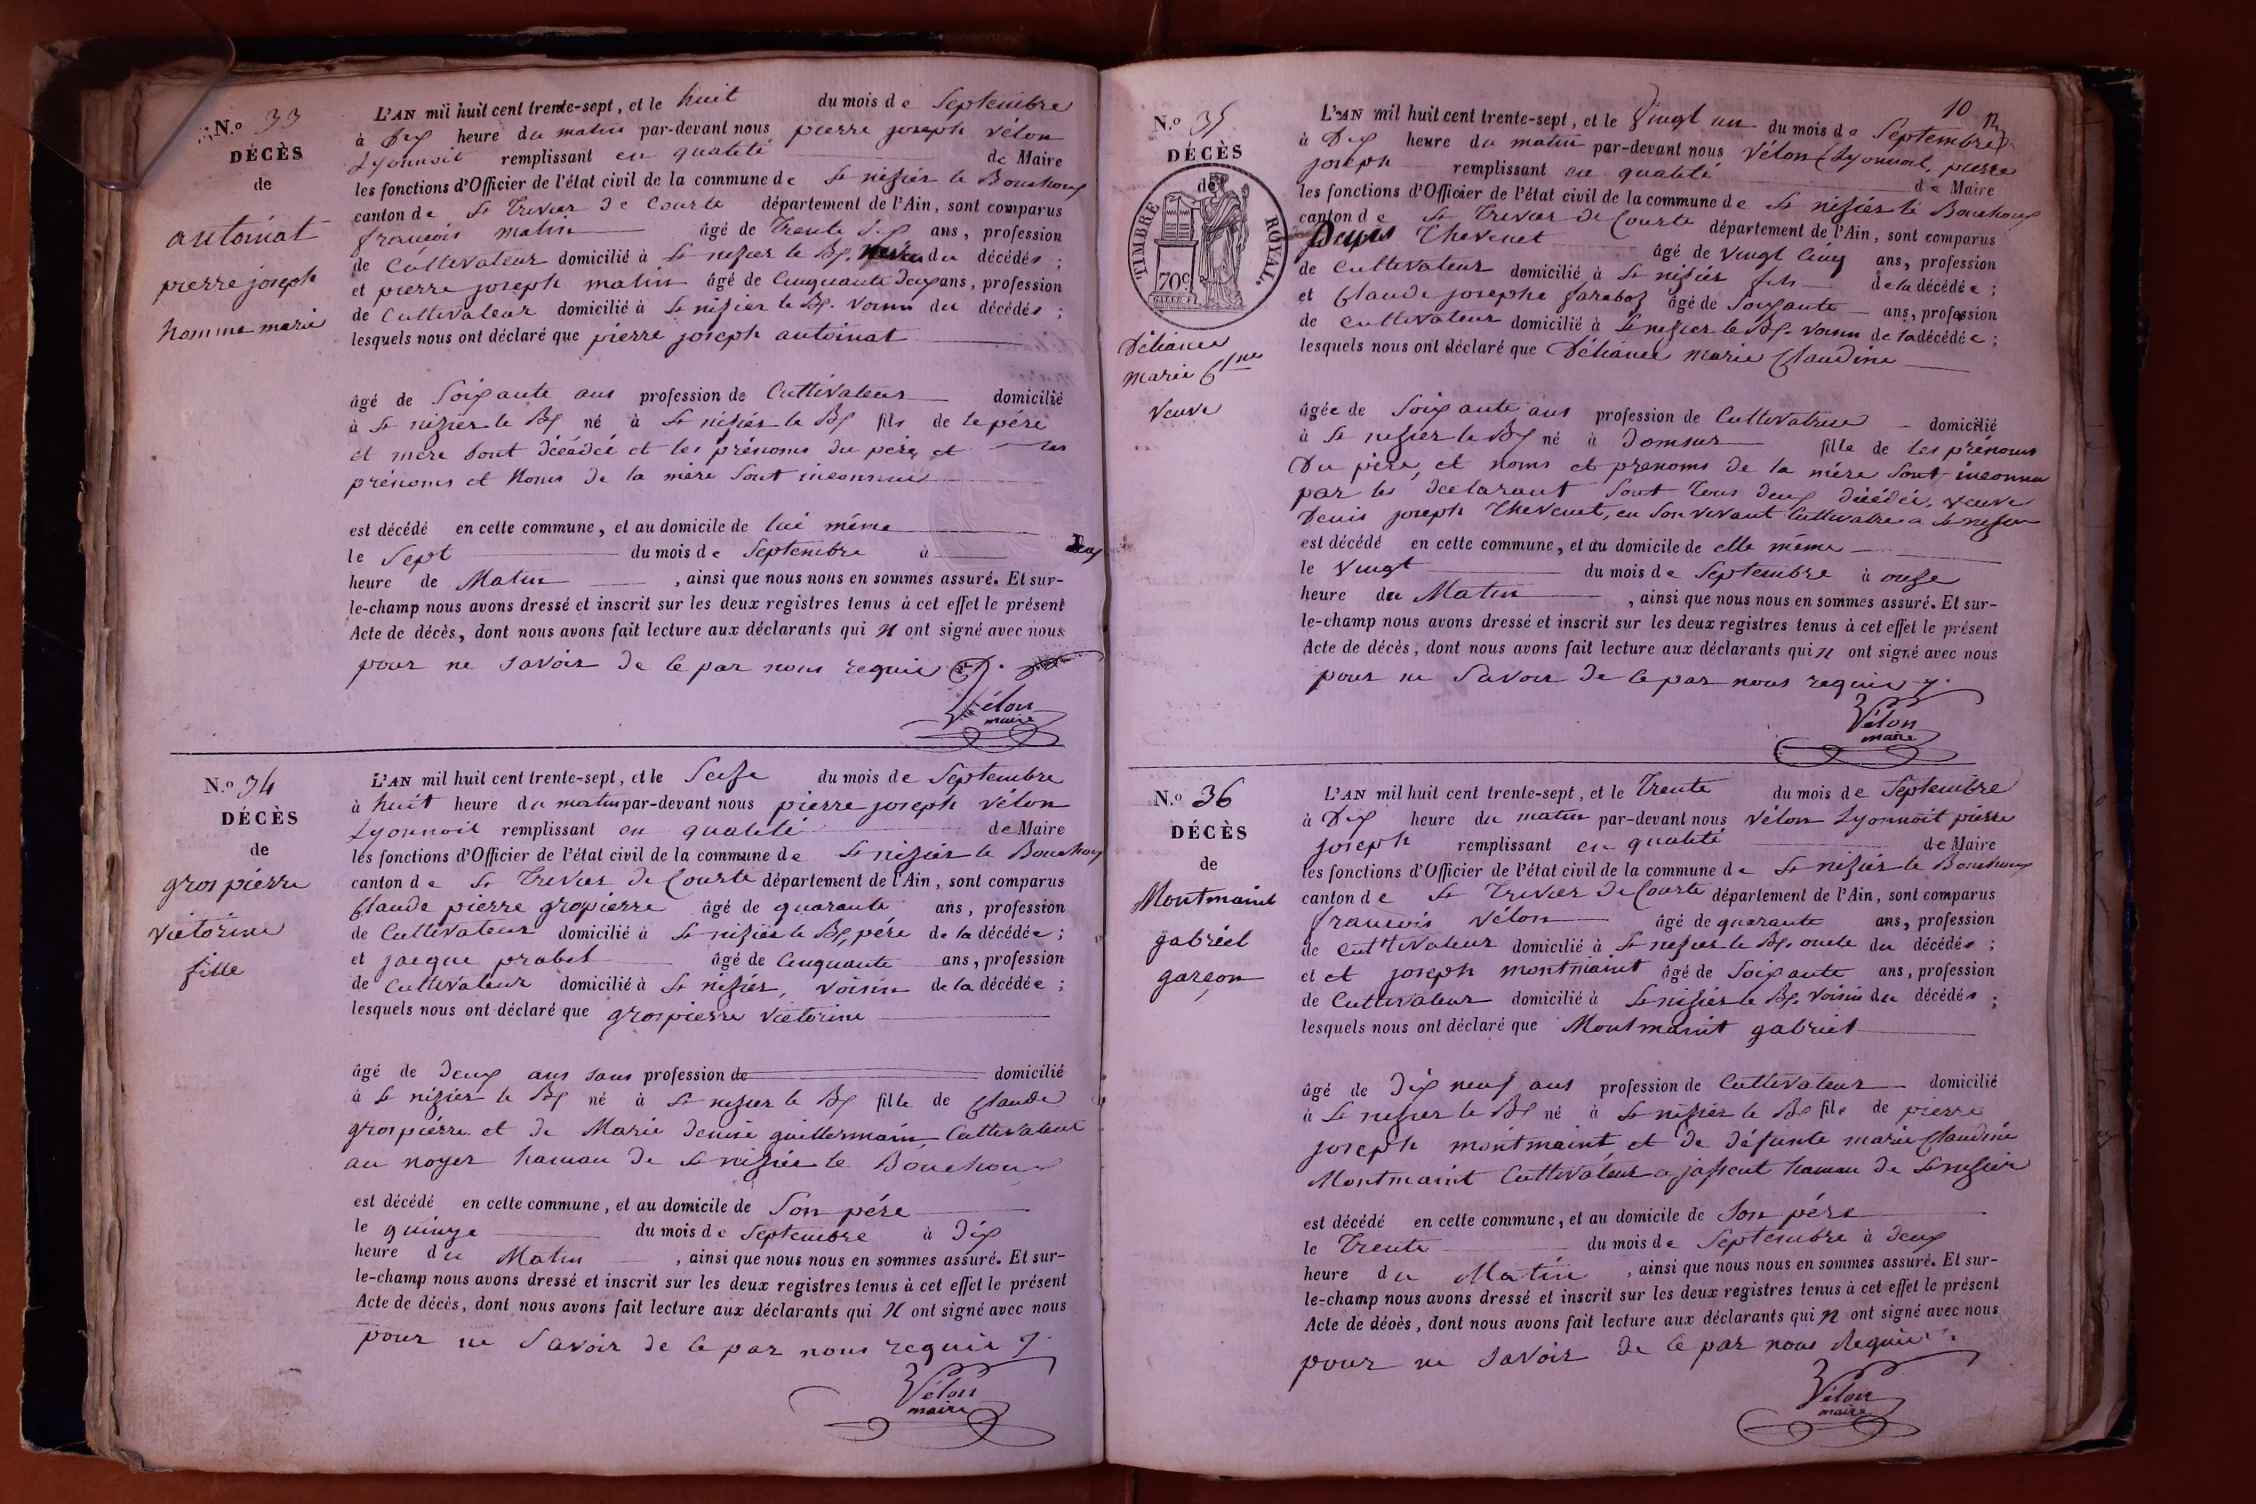 N.o 33
DÉCÈS
de
antoinat
pierre joseph
homme marié
L'AN mil huit cent trente-sept, et le huit du mois de Septembre
à Dix heure du matin par-devant nous pierre joseph Vélon
Lyonnoit remplissant en qualité de Maire
les fonctions d'Officier de l'état civil de la commune de St nizier le Bouchoux
canton de St Trivier de Courte département de l'Ain, sont comparus
françois matin âgé de Trente Six ans, profession
de Cultivateur domicilié à St nizier le Bx. neveu du décédé ;
et pierre joseph matin âgé de Cinquante deux ans, profession
de Cultivateur domicilié à St nizier le Bx. voisin du décédé ;
lesquels nous ont déclaré que pierre joseph antoinat
âgé de Soixante ans profession de Cultivateur domicilié
à St nizier le Bx né à St nizier le Bx fils de le pére
et mère sont décédés et les prénoms du père et les
prénoms et Noms de la mère Sont inconnus
est décédé en cette commune, et au domicile de lui même
le Sept du mois de Septembre à
heure de Matin , ainsi que nous nous en sommes assuré. Et sur-
le-champ nous avons dressé et inscrit sur les deux registres tenus à cet effet le présent
Acte de décès, dont nous avons fait lecture aux déclarants qui N ont signé avec nous
pour ne savoir de ce par nous requis
Vélon
maire
N.o 34
DÉCÈS
de
gros pierre
victorine
fille
L'AN mil huit cent trente-sept, et le Seize du mois de Septembre
à huit heure du matin par-devant nous pierre joseph Vélon
Lyonnoit remplissant en qualité de Maire
les fonctions d'Officier de l'état civil de la commune de St nizier le Bouchoux
canton de St Trivier de Courte département de l'Ain, sont comparus
Claude pierre grospierre âgé de quarante ans, profession
de Cultivateur domicilié à St nizier le Bx, pére de la décédée ;
et jacque probet âgé de Cinquante ans, profession
de Cultivateur domicilié à St nizier, voisin de la décédée ;
lesquels nous ont déclaré que grospierre victorine
âgé de deux ans sans profession de domicilié
à St nizier le Bx né à St nizier le Bx fille de Claude
grospierre et de Marie denise guillermain Cultivateur
au noyer hamau de St nizier le Bouchoux
est décédé en cette commune, et au domicile de Son pére
le quinze du mois de Septembre à dix
heure du Matin , ainsi que nous nous en sommes assuré. Et sur-
le-champ nous avons dressé et inscrit sur les deux registres tenus à cet effet le présent
Acte de décès, dont nous avons fait lecture aux déclarants qui N ont signé avec nous
pour ne Savoir de ce par nous requis
Vélon
maire
10
N.o 35
DÉCÈS
de
TIMBRE ROYAL.
70c
Déliance
Marie Cne
Veuve
L'AN mil huit cent trente-sept, et le Vingt un du mois de Septembre
à Dix heure du matin par-devant nous Vélon Lyonnoit, pierre
joseph remplissant en qualité de Maire
les fonctions d'Officier de l'état civil de la commune de St nizier le Bouchoux
canton de St Trivier de Courte département de l'Ain, sont comparus
Denis Thevenet âgé de Vingt Cinq ans, profession
de Cultivateur domicilié à St nizier fils de la décédée ;
et Claude josephe faraboz âgé de Soixante ans, profession
de Cultivateur domicilié à St nizier le Bx. voisin de la décédée ;
lesquels nous ont déclaré que Déliance marie Claudine
âgée de Soixante ans profession de Cultivatrice domicilié
à St nizier le Bx né à domsur fille de les prénoms
Du père, et noms et prenoms de la mére Sont inconnu
par les declarant Sont tous deux décédés, veuve
Denis joseph Thevenet, en Son vivant Cultivatre a St nizier
est décédé en cette commune, et au domicile de elle même
le Vingt du mois de Septembre à onze
heure du Matin , ainsi que nous nous en sommes assuré. Et sur-
le-champ nous avons dressé et inscrit sur les deux registres tenus à cet effet le présent
Acte de décès, dont nous avons fait lecture aux déclarants qui n ont signé avec nous
pour ne Savoir de ce par nous requis
Vélon
maire
N.o 36
DÉCÈS
de
Montmaint
gabriel
garçon
L'AN mil huit cent trente-sept, et le Trente du mois de Septembre
à Dix heure du matin par-devant nous Vélon Lyonnoit pierre
joseph remplissant en qualité de Maire
les fonctions d'Officier de l'état civil de la commune de St nizier le Bouchoux
canton de St Trivier de Courte département de l'Ain, sont comparus
françois Vélon âgé de quarante ans, profession
de Cultivateur domicilié à St nizier le Bx. oncle du décédé ;
et et joseph montmaint âgé de Soixante ans, profession
de Cultivateur domicilié à St nizier le Bx. voisin du décédé ;
lesquels nous ont déclaré que Montmaint gabriel
âgé de dix neuf ans profession de Cultivateur domicilié
à St nizier le Bx né à St nizier le Bx fils de pierre
joseph montmaint et de défunte marie Claudine
Montmaint Cultivateur a jassout hamau de St nizier
est décédé en cette commune, et au domicile de Son pére
le Trente du mois de Septembre à deux
heure du Matin , ainsi que nous nous en sommes assuré. Et sur-
le-champ nous avons dressé et inscrit sur les deux registres tenus à cet effet le présent
Acte de décès, dont nous avons fait lecture aux déclarants qui n ont signé avec nous
pour ne savoir de ce par nous Requis
Vélon
maire